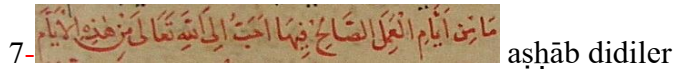 7- مَا مِنْ اَيَّامِ الْعَمَلُ الصَّالِحُ فِيهَا اَحَبُّ اِلَى اللّٰهِ تَعَالَى مِنْ هٰذِهِ الْاَيَّامِ aṣḥāb didiler